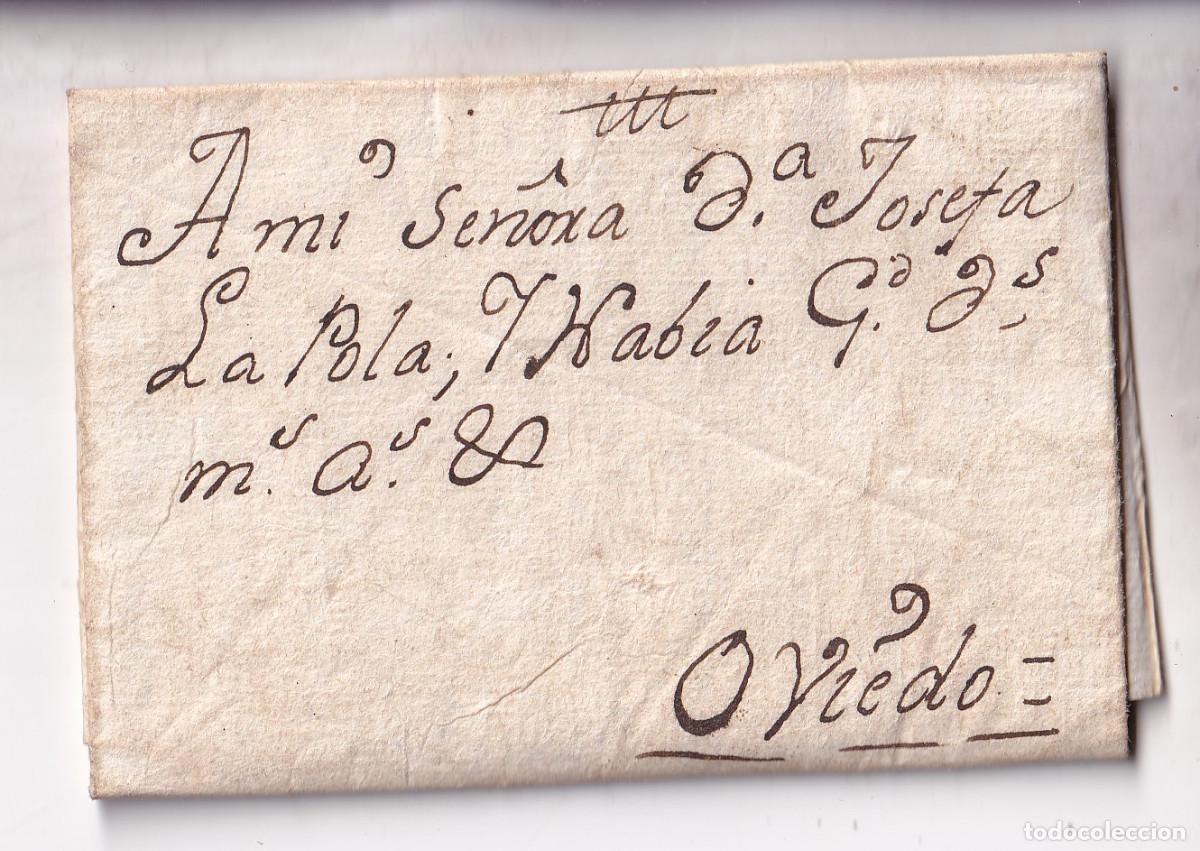 A mi Señora D.ª Josefa
La Pola; Y Nabia G.de D.s
m.s a.s &
Oviedo =
todocoleccion